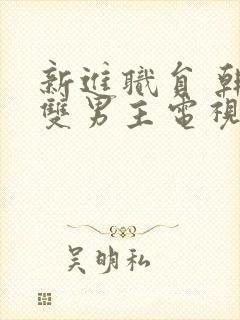 新進職員 韓
雙男主電視
吴明私